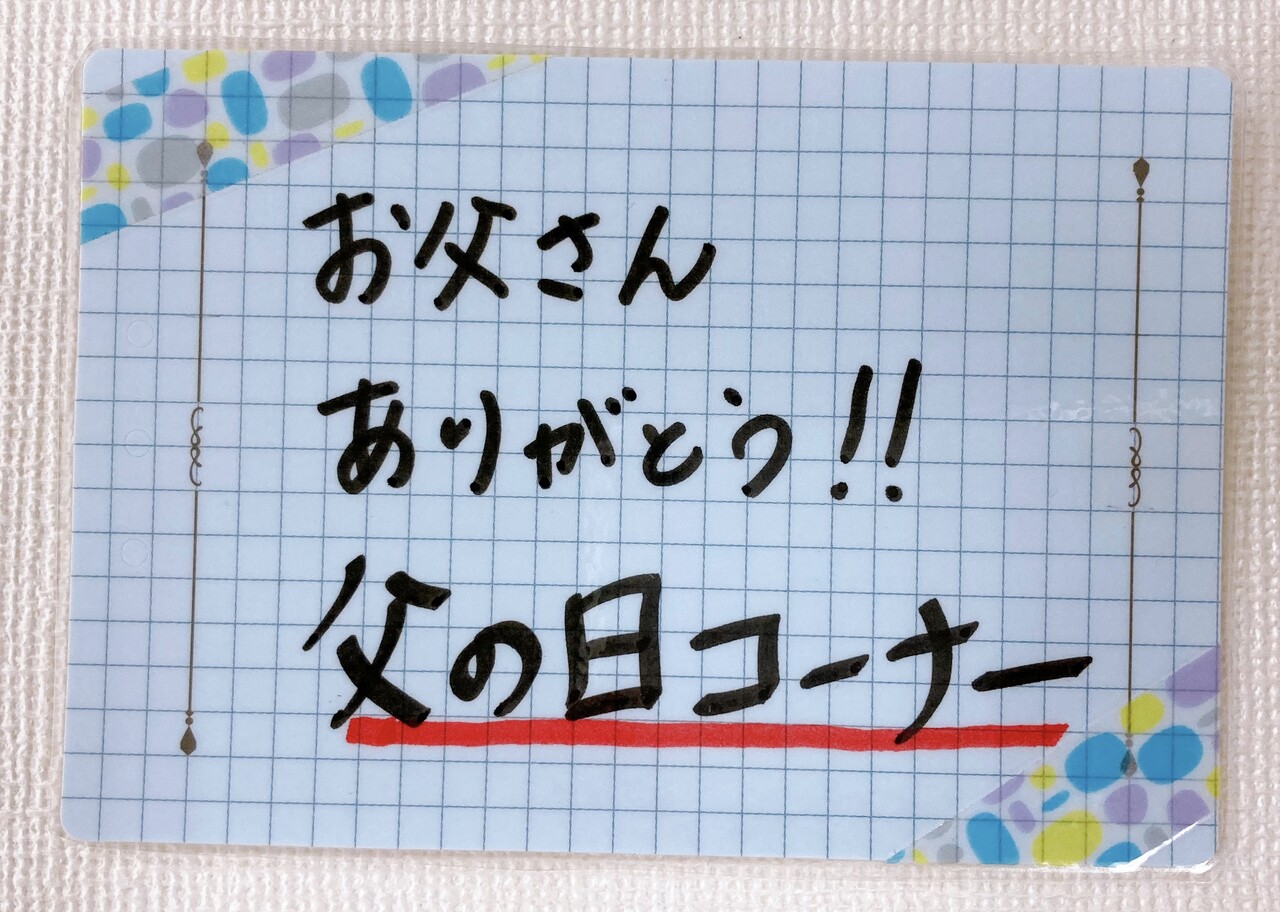 お父さん
ありがとう!!
父の日コーナー